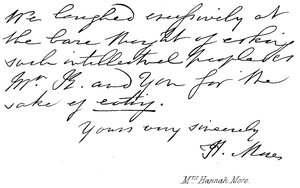 We laughed excessively at
the bare thought of asking
such intellectual people as
Mr. H. and You for the
sake of eating.
Yours very sincerely
H. More
Mrs Hannah More.